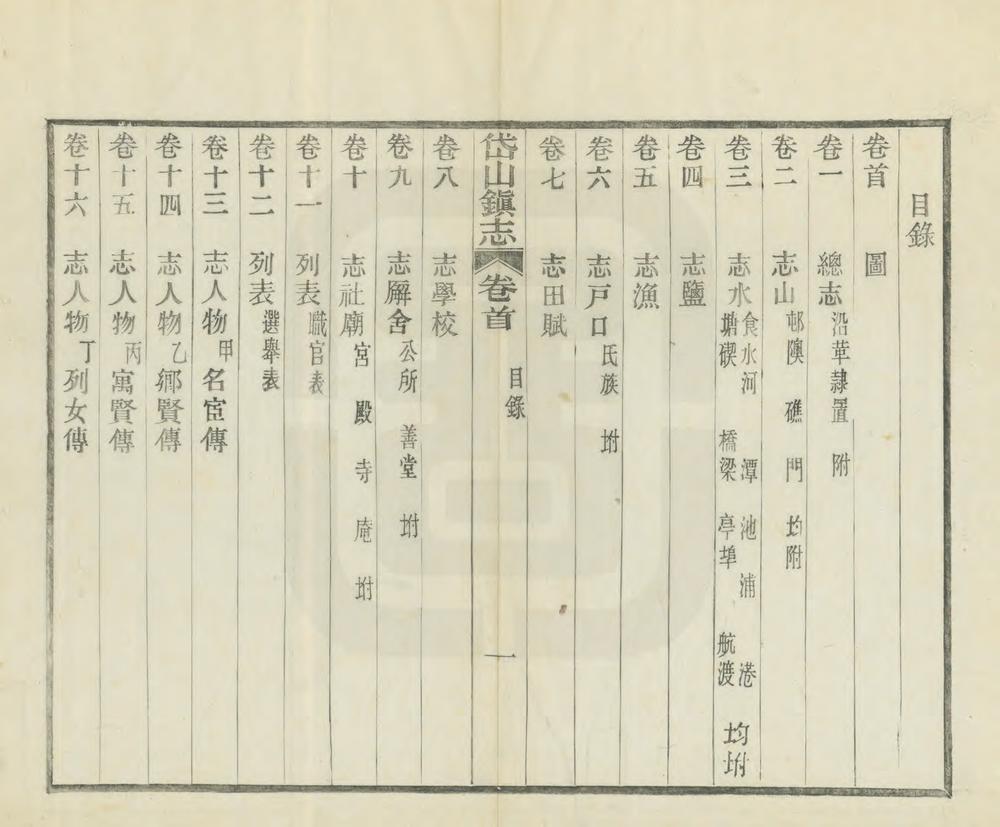 目錄
卷首 圖
卷一 總志 沿革隸置 附
卷二 志山 邨隩 礁 門 均附
卷三 志水 食水河 潭 池 浦 港
塘碶 橋梁 亭埠 航渡 均坿
卷四 志鹽
卷五 志漁
卷六 志戶口 氏族 坿
卷七 志田賦
岱山鎮志 卷首 目錄 一
卷八 志學校
卷九 志廨舍 公所 善堂 坿
卷十 志社廟 宮 殿 寺 庵 坿
卷十一 列表 職官表
卷十二 列表 選舉表
卷十三 志人物 甲 名宦傳
卷十四 志人物 乙 鄉賢傳
卷十五 志人物 丙 寓賢傳
卷十六 志人物 丁 列女傳